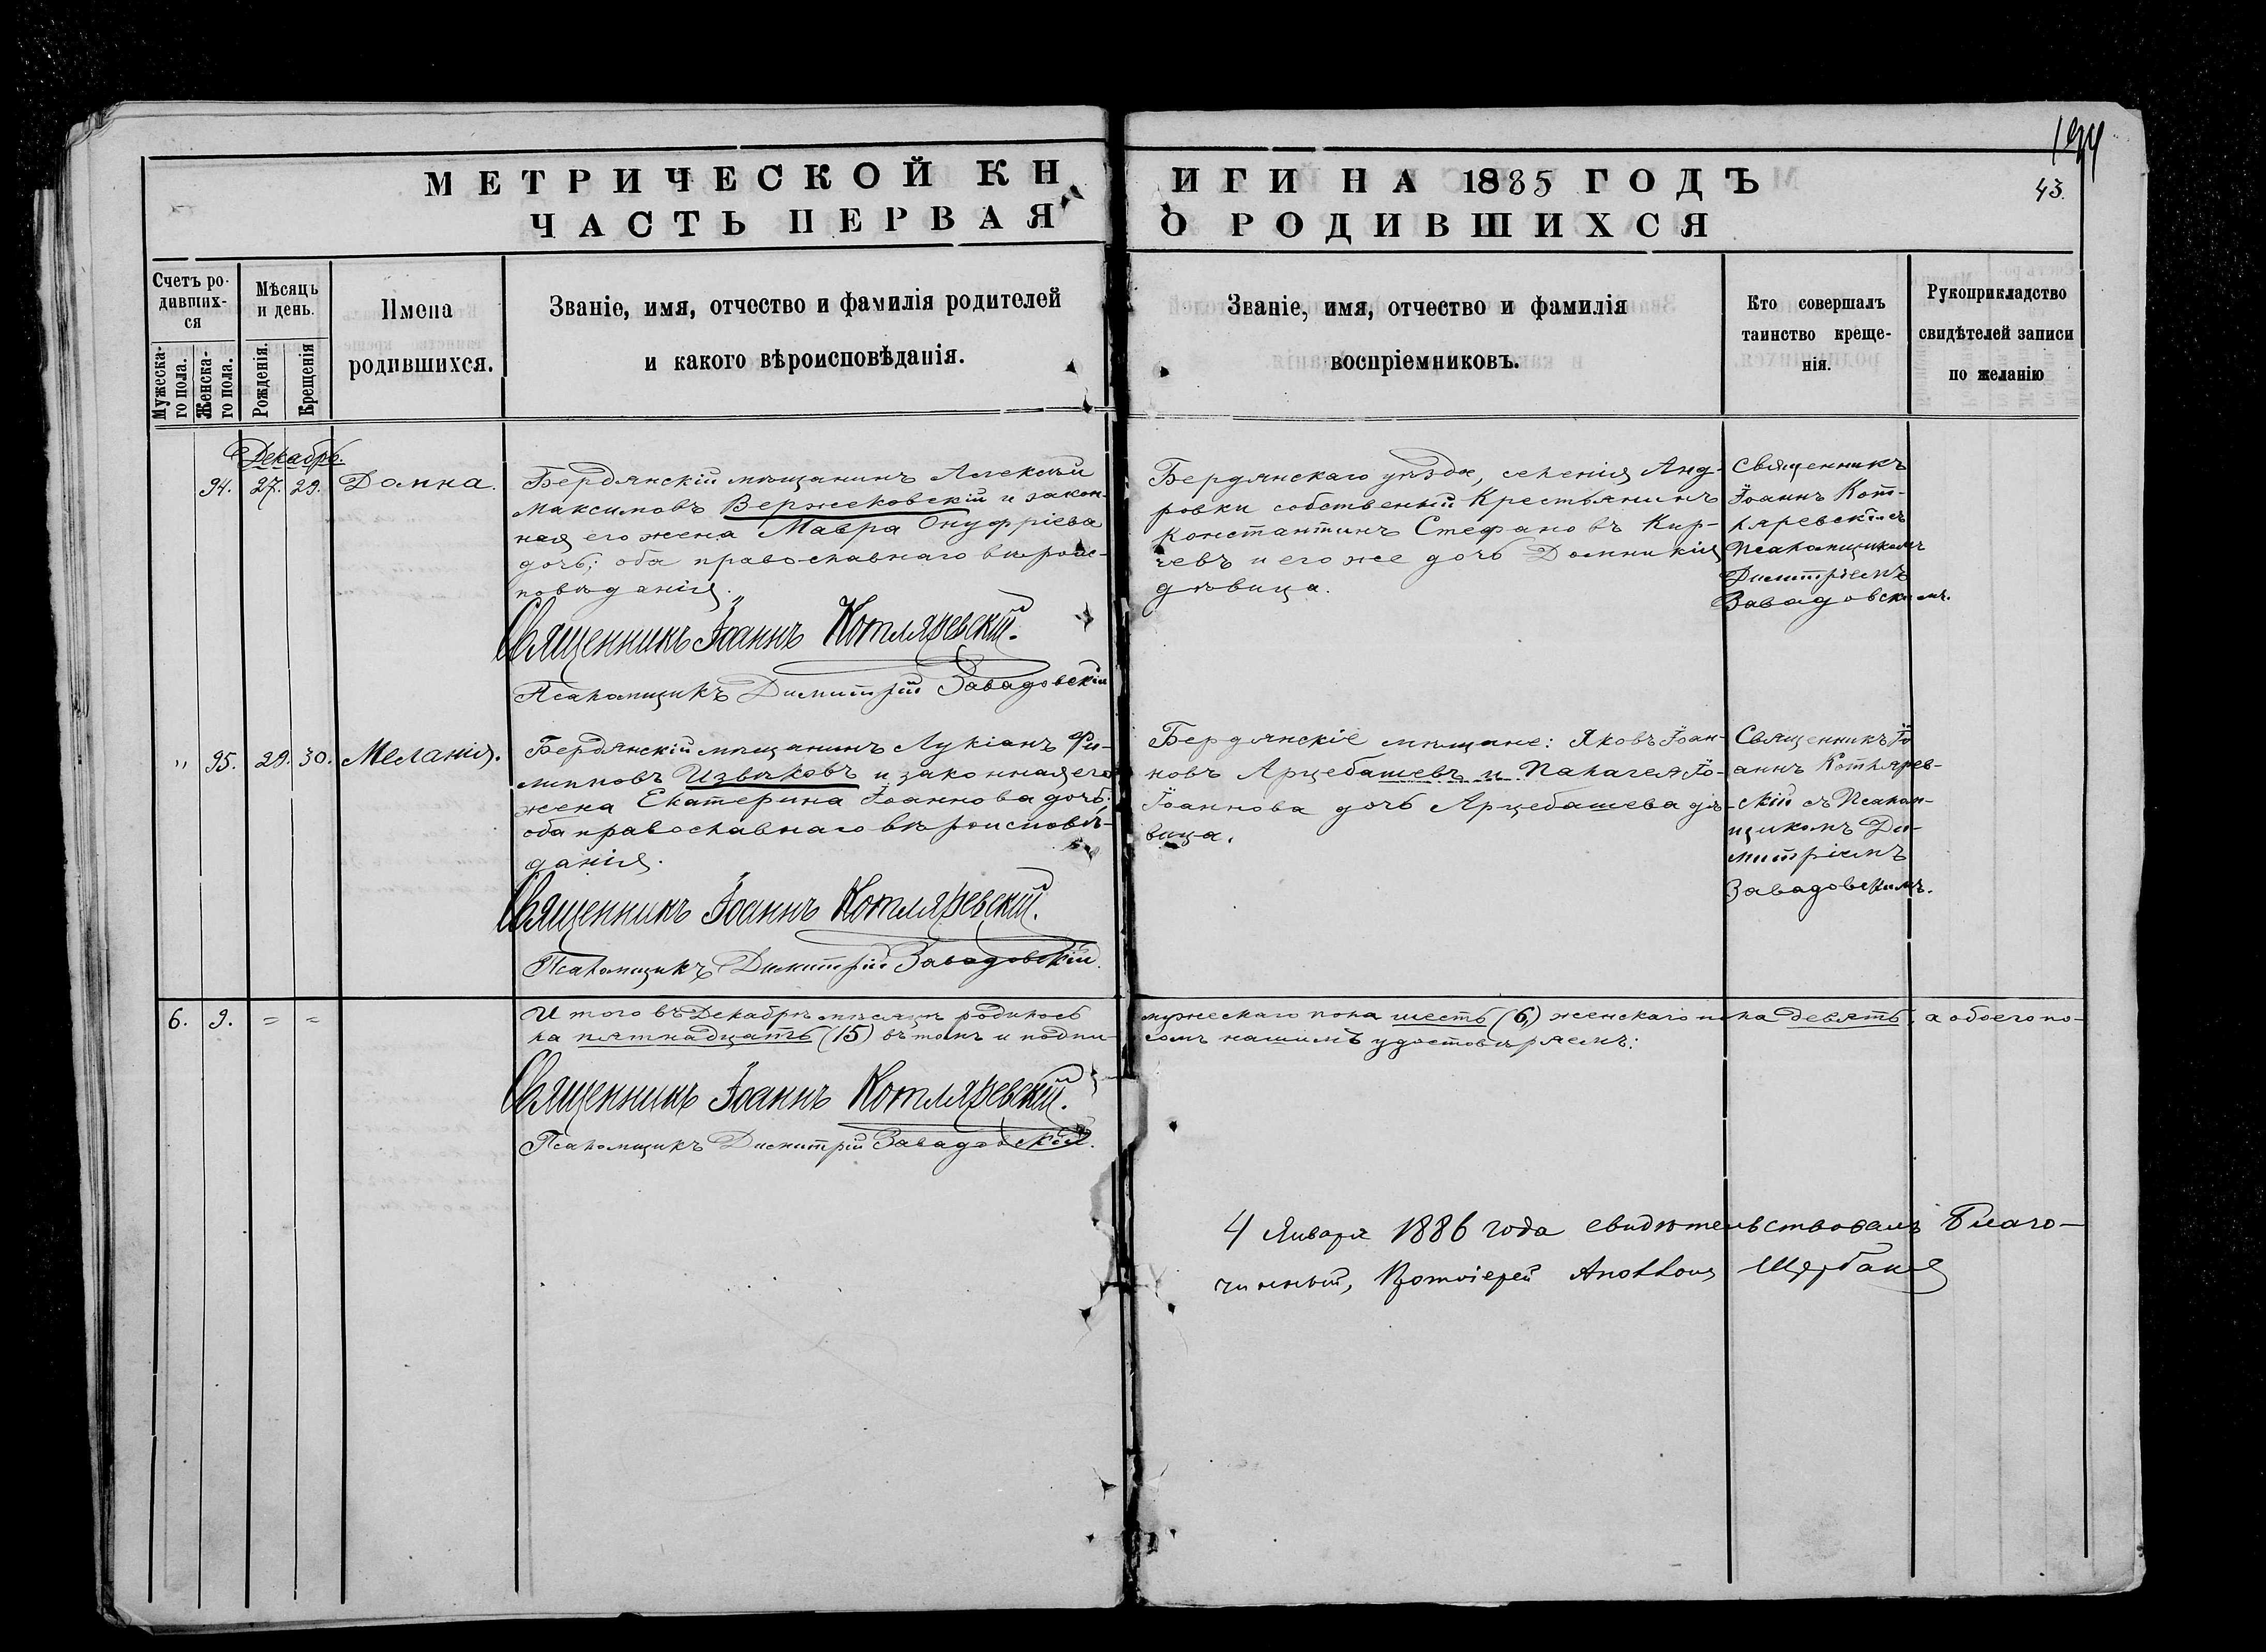 МЕТРИЧЕСКОЙ КНИГИ НА 1885 ГОДЪ
43.
ЧАСТЬ ПЕРВАЯ О РОДИВШИХСЯ
Счетъ ро-
дивших-
ся
Мужеска-
го пола.
Женска-
го пола.
Мѣсяцъ
и день.
Рожденія.
Крещенія
Имена
родившихся.
Званіе, имя, отчество и фамилія родителей
и какого вѣроисповѣданія.
Званіе, имя, отчество и фамилія
воспріемниковъ.
Кто совершалъ
таинство креще-
нія.
Рукоприкладство
свидѣтелей записи
по желанію
Декабрь.
94. 27. 29. Домна.
Бердянскій мѣщанинъ Алексѣй
Максимовъ Вержековскій и закон-
ная его жена Мавра Онуфріева
дочь; оба православнаго вѣроис-
повѣданія.
Священникъ Іоаннъ Котляревскій.
Псаломщикъ Димитрій Завадовскій
Бердянскаго уѣзда, селенія Анд-
ровки собственный Крестьянинъ
Константинъ Стефановъ Кир-
чевъ и его же дочь Домникія
дѣвица.
Священникъ
Іоаннъ Кот-
ляревскій съ
Псаломщикомъ
Димитріемъ
Завадовскимъ.
" 95. 29. 30. Меланія.
Бердянскій мѣщанинъ Лукіанъ Фи-
липовъ Извѣковъ и законная его
жена Екатерина Іоаннова дочь;
оба православнаго вѣроисповѣ-
данія.
Священникъ Іоаннъ Котляревскій.
Псаломщикъ Димитрій Завадовскій.
Бердянскіе мѣщане: Яковъ Іоан-
новъ Арцебашевъ и Палагея Іо-
Іоаннова дочь Арцебашева дѣ-
вица.
Священникъ Іо-
аннъ Котлярев-
скій съ Псалом-
щикомъ Ди-
митріемъ
Завадовскимъ.
6. 9. = =
Итого въ Декабрѣ мѣсяцѣ родилось мужескаго пола шесть (6) женскаго пола девять, а обоего по-
ла пятнадцать (15) въ томъ и подпи-сомъ нашимъ удостовѣряемъ:
Священникъ Іоаннъ Котляревскій.
Псаломщикъ Димитрій Завадовскій.
4 Января 1886 года свидѣтельствовалъ Благо-
чинный, Протоіерей Щербаковъ